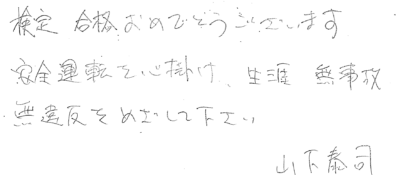 検定 合格おめでとうございます
安全運転を心掛け、生涯 無事故
無違反をめざして下さい
山下泰司